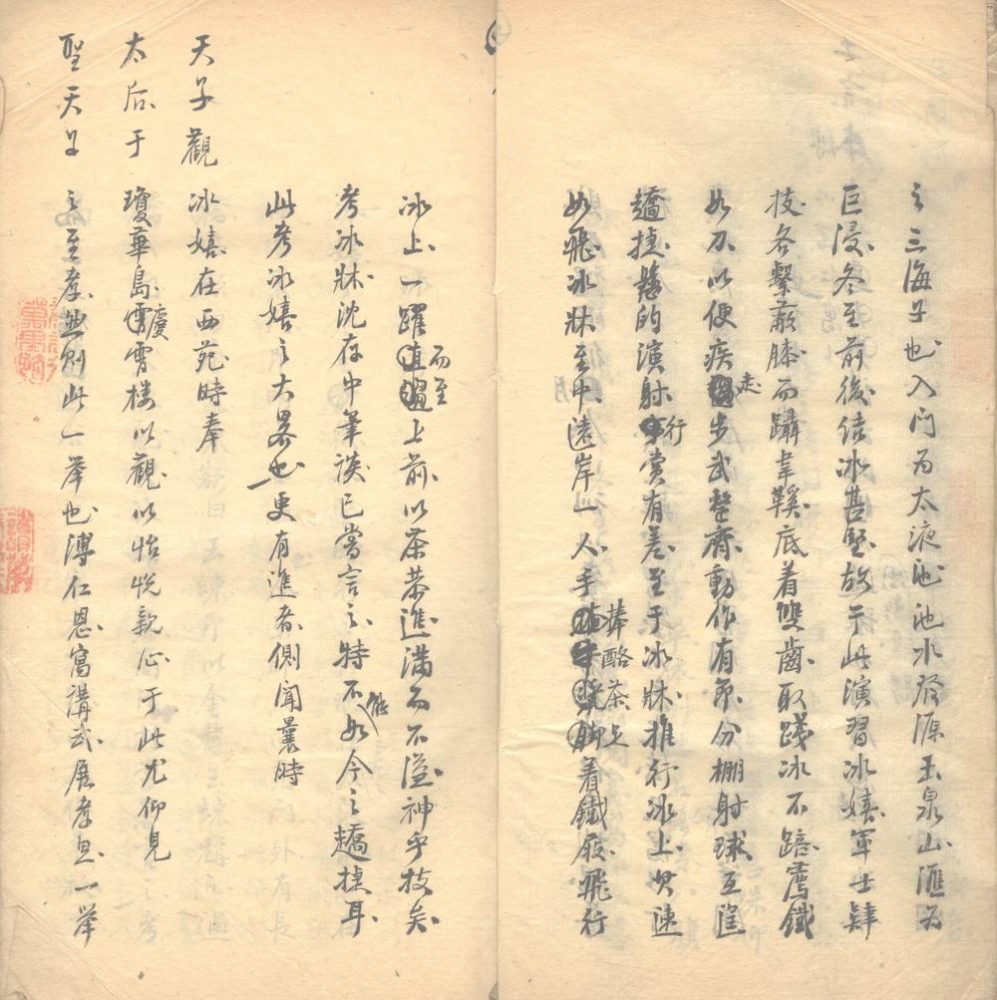 之三海子也入门为太液池池水发源玉泉山汇为
巨浸冬至前後结冰甚坚故于此演習冰嬉軍士肄
技各繫蔽膝而躡韋鞵底着雙齒取踐冰不踣荐鐵
如刀以便疾走步武整齊動作有節分棚射球互逞
趫捷懸的演射行賞有差至于冰牀推行冰上其速
如飛冰牀至中遠岸一人手捧酪茶足着鐵屐飛行
冰上一躍而至上前以茶恭進满而不溢神乎技矣
考冰牀沈存中筆談已嘗言之特不能如今之趫捷耳
此考冰嬉之大畧也更有進者側聞曩時
天子觀冰嬉在西苑時奉
太后于瓊華島慶霄楼以觀以怡悦親心于此尤仰見
聖天子之至孝然则此一举也溥仁恩寓講武展孝思一举